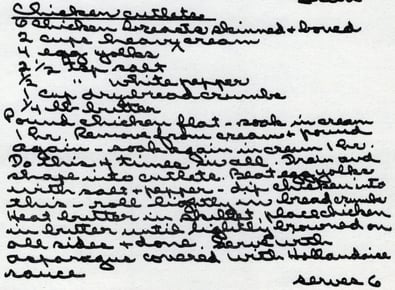 Chicken cutlets
6 chicken breasts skinned & boned
2 cups heavy cream
4 egg yolks
2 1/2 tsp salt
1/2 " white pepper
1 cup dry bread crumbs
1/4 lb butter
Pound chicken flat - soak in cream
1 hr. Remove from cream & pound
again - soak again in cream 1 hr.
Do this 4 times in all. Drain and
shape into cutlets. Beat egg yolks
with salt & pepper - dip chicken into
this - roll lightly in bread crumbs
Heat butter in skillet, place chicken
in butter until lightly browned on
all sides & done. Serve with
asparagus covered with Hollandaise
sauce
serves 6